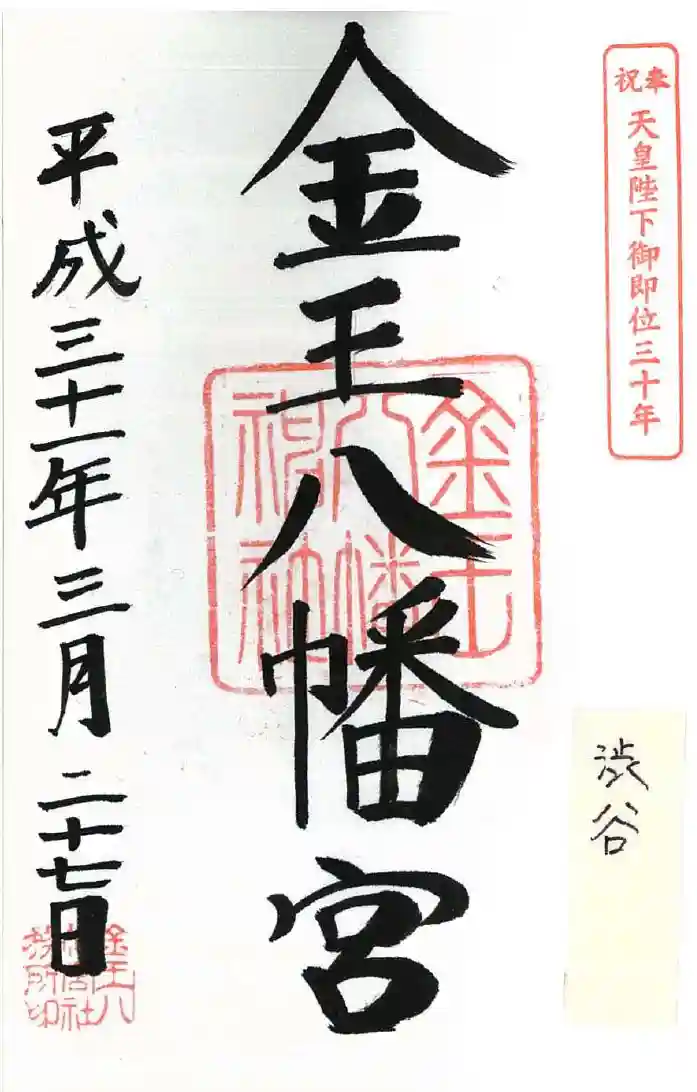 奉祝
天皇陛下御即位三十年
渋谷
金王八幡宮
金王
八幡
神社
平成三十一年三月二十七日
金王八
幡宮社
務所印